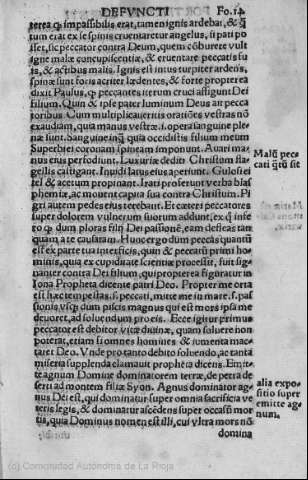 DEFVNCTI Fo.14
terea ꝙ impassibilis erat, tamen ignis ardebat, & q̃
tum erat ex se spinis cruentaretur angelus, si pati pos
set, sic peccator contra Deum, quem cōburere vult
igne malæ concupiscentiæ, & cruentare peccatis su
is, & actibus malis. Ignis est intus turpiter ardens,
spinæ sunt foris acriter lædentes, & forte propterea
dixit Paulus, ꝙ peccantes iterum cruci affigunt Dei
filium. Quin & ipse pater luminum Deus ait pecca
toribus. Cum multiplicaueritis orationes vestras nō
exaudiam, quia manus vestræ .i. opera sanguine ple
næ sunt. Sanguine inq̃ quia occidistis filium meum
Superbi ei coronam spineam imponunt. Auari ma-
nus eius perfodiunt. Luxuriæ dediti Christum fla-
gellis castigant. Inuidi latus eius aperiunt. Gulosi ei
fel & acetum propinant. Irati proferunt verba blas
phemiæ, ac mouent capita sua contra Christum. Pi
gri autem pedes eius terebant. Et cæteri peccatores
super dolorem vulnerum suorum addunt, ex q̃ infe
to ꝙ dum ploras filij Dei passionē, eam defleas tan
quam a te causatam. Hunc ergo dum peccas quantū
est ex parte tua interficis, quin & peccatū primi ho
minis, quia ex cupiditate scientiæ processit, fuit sig-
nanter contra Dei filium, qui propterea figuratur in
Iona Propheta dicente patri Deo. Propter me orta
est hæc tempestas .s. peccati, mitte me in mare .s. pas
sionis vsq̃ dum piscis magnus qui est mors ipsa me
deuoret, ad soluendum pro eis. Ecce igitur primus
peccator est debitor vitæ diuinæ, quam soluere non
poterat, etiam si omnes homines & iumenta mac-
taret Deo. Vnde pro tanto debito soluendo, ac tanta
miseria supplenda clamauit propheta dicens. Emit-
te agnum Domine dominatorem terræ, de petra de
serti ad montem filiæ Syon. Agnus dominator ag-
nus Dei est, qui dominatur super omnia sacrificia ve
teris legis, & dominatur ascēdens super occasum mor
tis, quia Dominus nomen est illi, cui vltra mors nō
domina
Malũ pec-
cati q̃tũ sit
alia expo-
sitio super
emitte ag-
num.
(c) Comunidad Autónoma de La Rioja